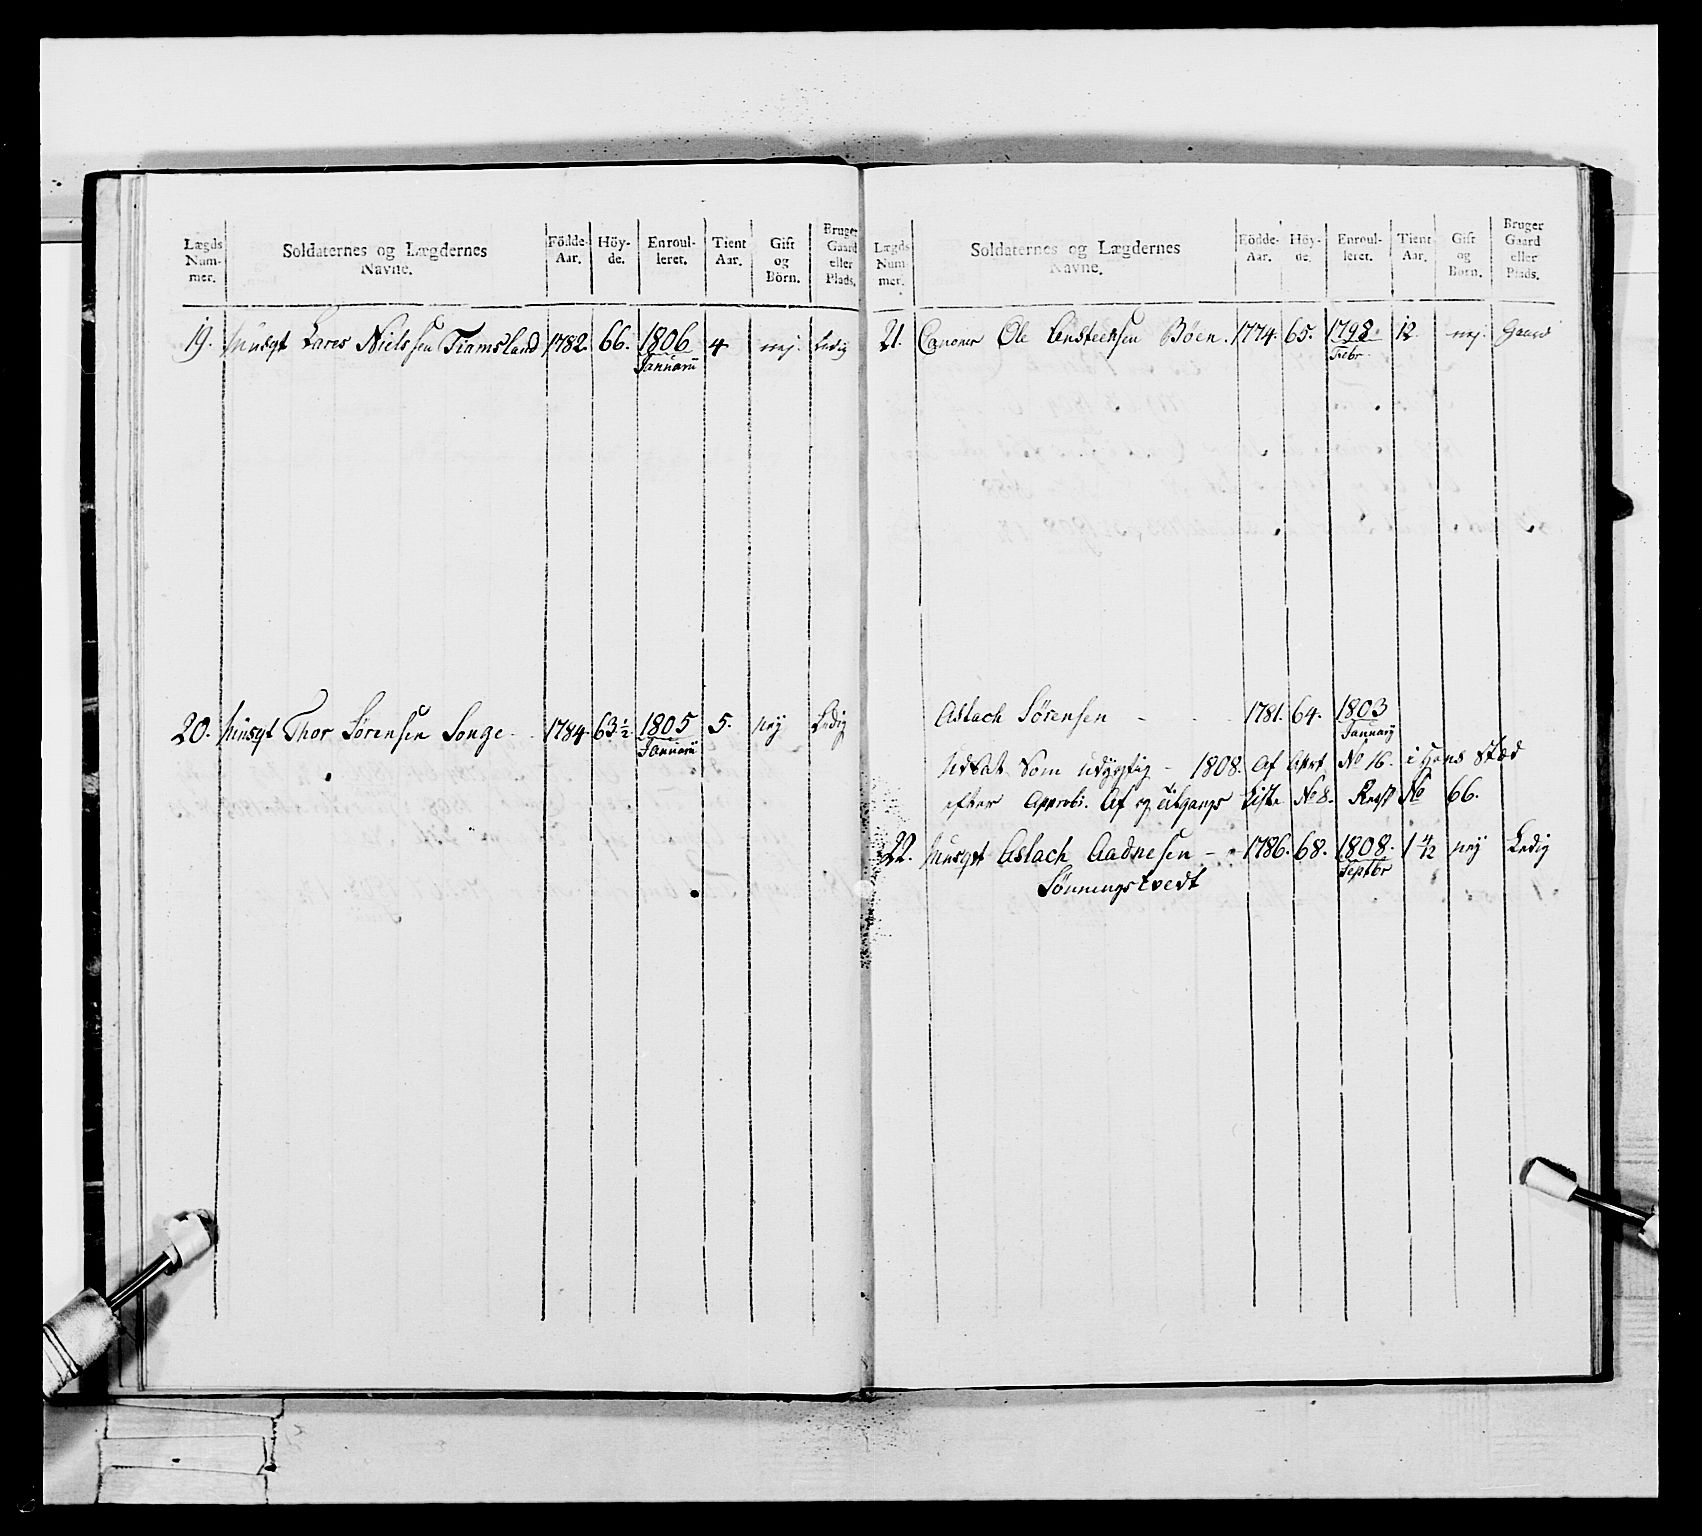 Lægds Nummer. Soldaternes og Lægdernes Navne. Födde-Aar. Höyde. Enroulleret. Tient Aar. Gift og Börn. Bruger Gaard eller Plads.
19. Musqt Lars Nielssen Tiamsland 1782. 66. 1806 4 nej. Ledig
Januarii
20. Musqt Thor Sørensen Songe 1784 63½ 1805 5. nej Ledig
Januarii
Lægds Nummer. Soldaternes og Lægdernes Navne. Födde-Aar. Höyde. Enroulleret. Tient Aar. Gift og Börn. Bruger Gaard eller Plads.
21. Canoner Ole Ansteensen Böen. 1774. 65. 1798. 12 nej. Gaard
Febr.
Aslach Sørensen - 1781. 64. 1803
January
Udsat som udygtig - 1808. Af No 16. i hans Stæd
efter Approb. Af og tilgangs Liste No 8. No 66.
22. Musqt Aslach Aadnesen - 1786. 68. 1808. 1 4/12 nej Ledig
Sønningstvedt Septbr